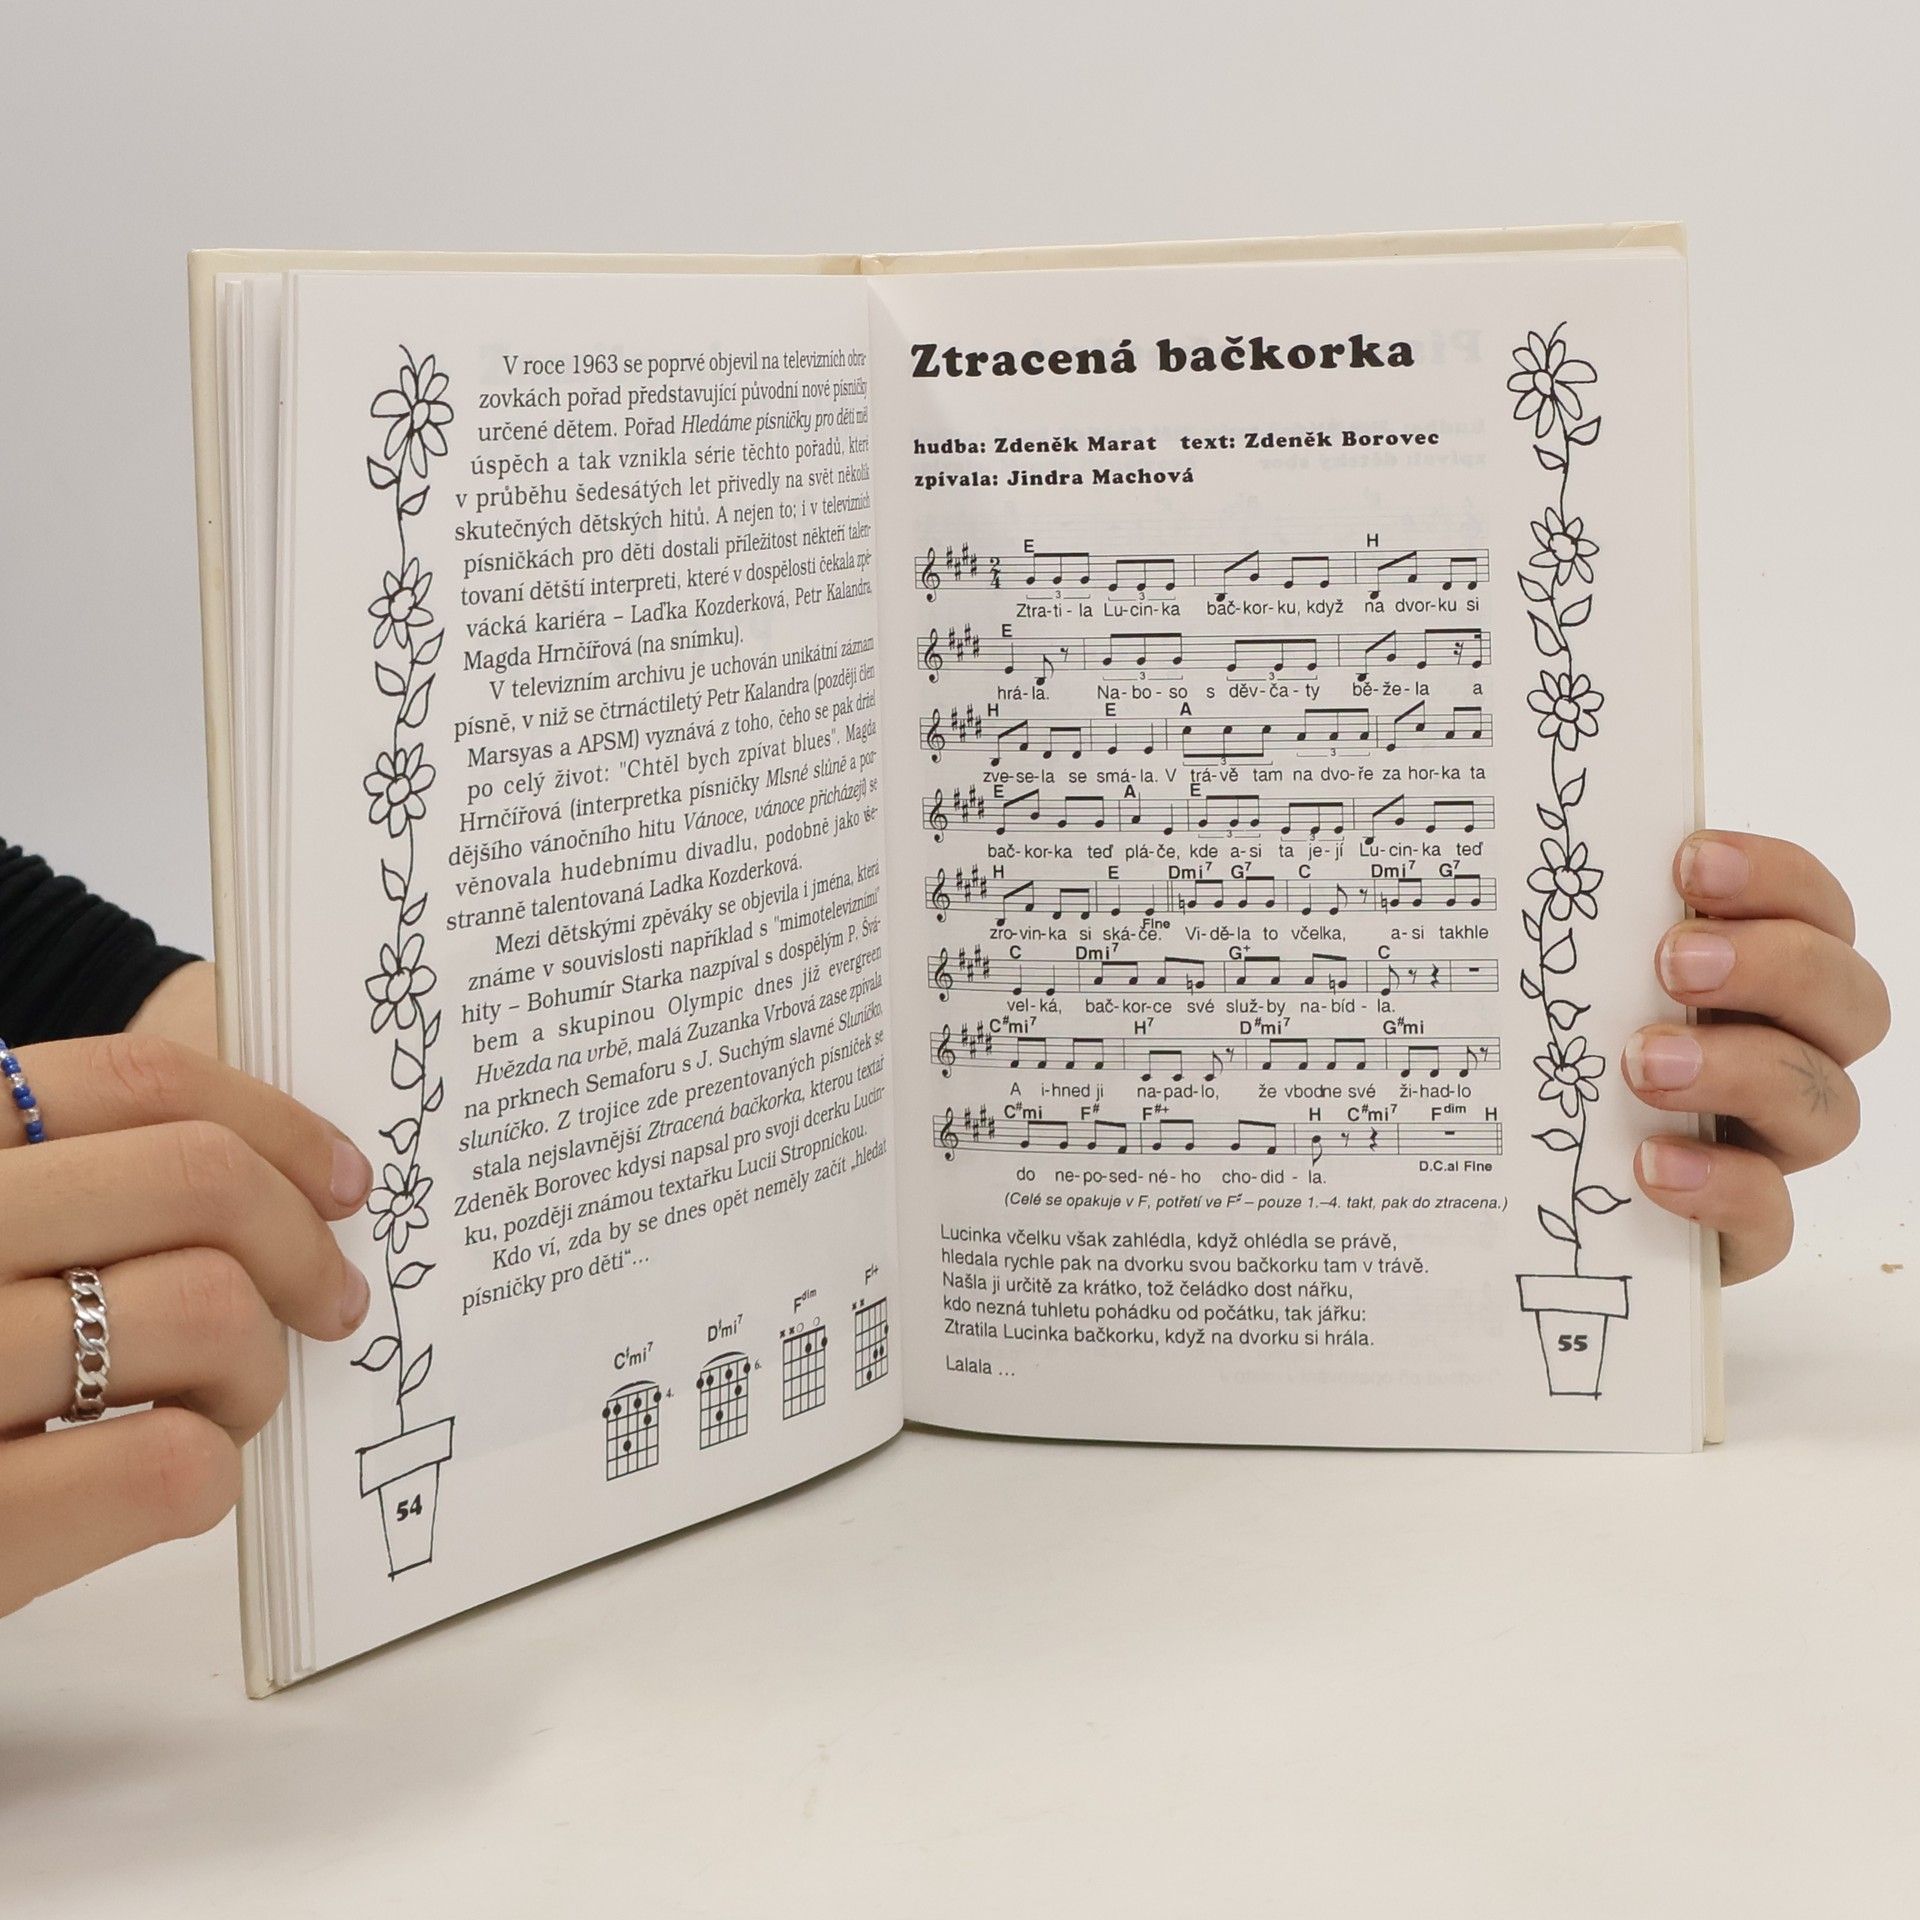 V roce 1963 se poprvé objevil na televizních obra-
zovkách pořad představující původní nové písničky
určené dětem. Pořad Hledáme písničky pro děti měl
úspěch a tak vznikla série těchto pořadů, které
v průběhu šedesátých let přivedly na svět několik
skutečných dětských hitů. A nejen to; i v televizních
písničkách pro děti dostali příležitost někteří talen-
tovaní dětští interpreti, které v dospělosti čekala zpě-
vácká kariéra – Laďka Kozderková, Petr Kalandra,
Magda Hrnčířová (na snímku).
V televizním archivu je uchován unikátní záznam
písně, v niž se čtrnáctiletý Petr Kalandra (později člen
Marsyas a APSM) vyznává z toho, čeho se pak držel
po celý život: "Chtěl bych zpívat blues". Magda
Hrnčířová (interpretka písničky Mlsné slůně a poz-
dějšího vánočního hitu Vánoce, vánoce přicházejí) se
věnovala hudebnímu divadlu, podobně jako vše-
stranně talentovaná Ladka Kozderková.
Mezi dětskými zpěváky se objevila i jména, která
známe v souvislosti například s "mimotelevizními"
hity – Bohumír Starka nazpíval s dospělým P. Švá-
bem a skupinou Olympic dnes již evergreen
Hvězda na vrbě, malá Zuzanka Vrbová zase zpívala
na prknech Semaforu s J. Suchým slavné Sluníčko,
sluníčko. Z trojice zde prezentovaných písniček se
stala nejslavnější Ztracená bačkorka, kterou textař
Zdeněk Borovec kdysi napsal pro svoji dcerku Lucin-
ku, později známou textařku Lucii Stropnickou.
Kdo ví, zda by se dnes opět neměly začít „hledat
písničky pro děti“...
C♯mi7 D♯mi7 Fdim F♯+
4. 6.
54
Ztracená bačkorka
hudba: Zdeněk Marat text: Zdeněk Borovec
zpívala: Jindra Machová
E H
2/4
3 3
Ztra-ti-la Lu-cin-ka bač-kor-ku, když na dvor-ku si
E
3 3
hrá-la. Na-bo-so s děv-ča-ty bě-že-la a
H E A
3 3
zve-se-la se smá-la. V trá-vě tam na dvo-ře za hor-ka ta
E A E
3 3
bač-kor-ka teď plá-če, kde a-si ta je-jí Lu-cin-ka teď
H E Dmi7 G7 C Dmi7 G7
zro-vin-ka si ská-če. Fine Vi-dě-la to včelka, a-si takhle
C Dmi7 G+ C
vel-ká, bač-kor-ce své služ-by na-bíd-la.
C#mi7 H7 D#mi7 G#mi
A i-hned ji na-pad-lo, že vbodne své ži-had-lo
C#mi F# F#+ H C#mi7 Fdim H
D.C.al Fine
do ne-po-sed-né-ho cho-did-la.
(Celé se opakuje v F, potřetí ve F♯ – pouze 1.–4. takt, pak do ztracena.)
Lucinka včelku však zahlédla, když ohlédla se právě,
hledala rychle pak na dvorku svou bačkorku tam v trávě.
Našla ji určitě za krátko, tož čeládko dost nářku,
kdo nezná tuhletu pohádku od počátku, tak jářku:
Ztratila Lucinka bačkorku, když na dvorku si hrála.
Lalala ...
55